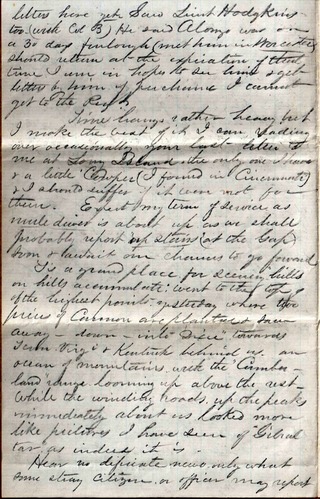 letters here yet. Saw Lieut Hodgkins
too (with Col B) He said Alonzo was on
a 30 days furlough (met him in Worcester)
should return at the expiration of that
time I am in hopes to see him & get
letters by him if perchance I cannot
get to the Regt
Time hangs rather heavy but
I make the best of it I can, reading
over occasionally your last letter to
me at Long Island the only one I have
& a little Cowper (I found in Cincinnati)
& I should suffer if it were not for
them. Expect my term of service as
mule driver is about up as we shall
probably report up stairs (at the Gap)
soon & await our chances to go forward
Is a grand place for scenery hills
on hills accumulate went to the top
of the highest point yesterday where two
pieces of Cannon are planted & saw
away down into Dixie towards
Tenn Virg'a & Kentuck behind us an
ocean of mountains, with the Cumber-
land range looming up above the rest
While the winding roads up the peaks
immediately about us looked more
like pictures I have seen of Gibral
tar as indeed it is
Hear no definite news, only what
some stray citizen or officer may report